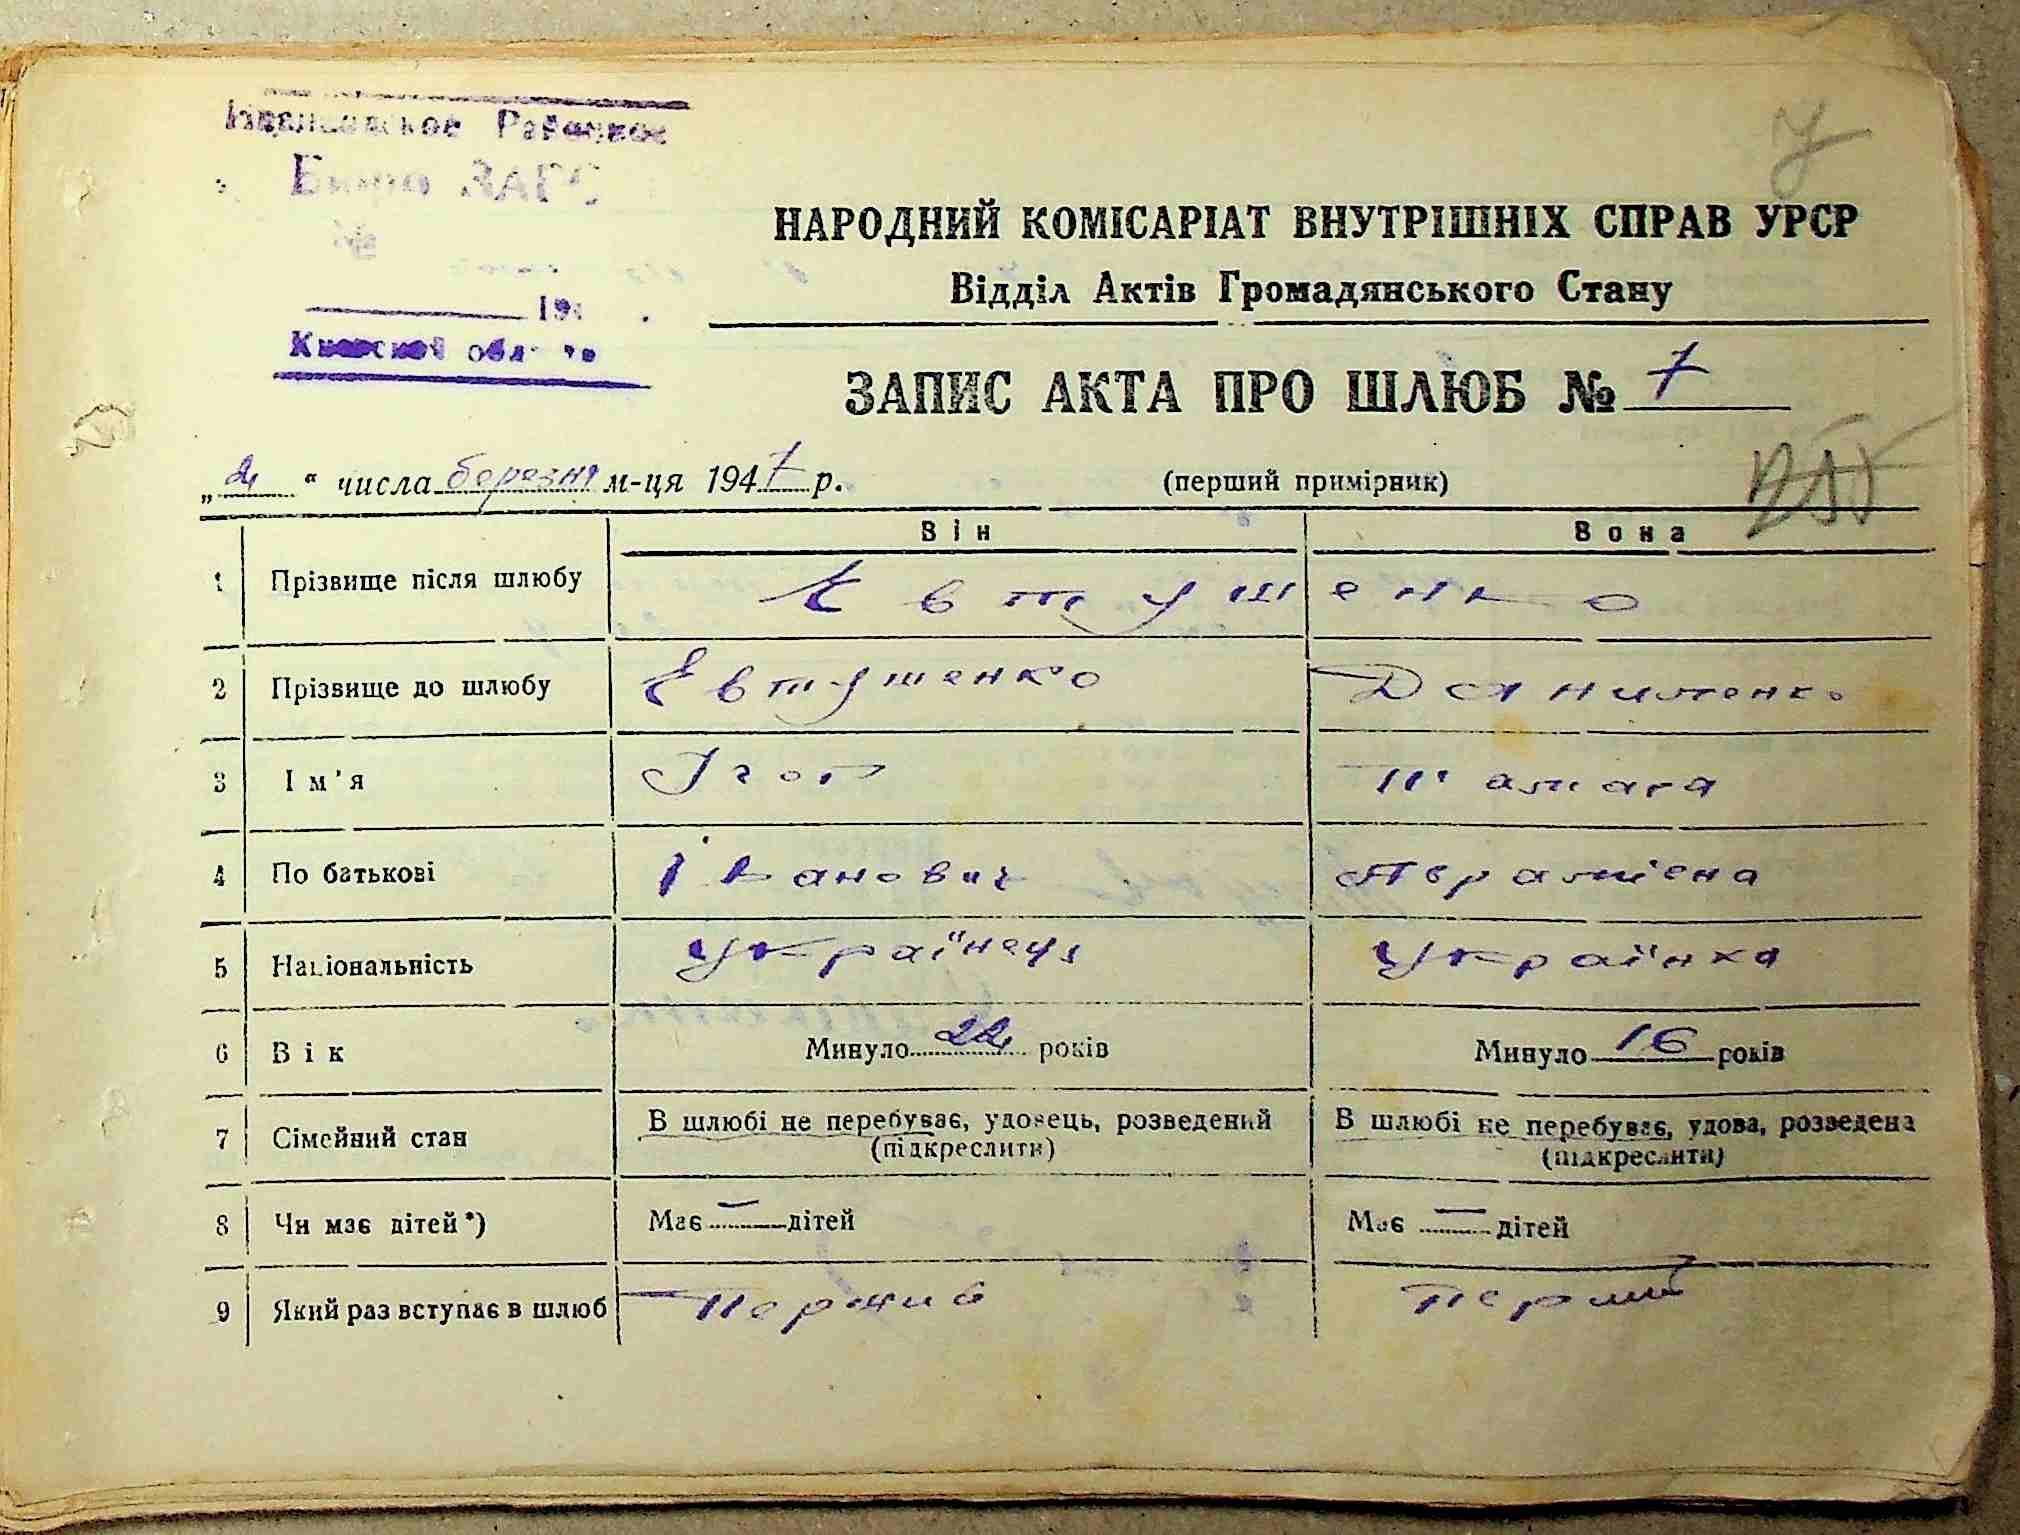 Районное
Бюро ЗАГС
194
Киевской области
НАРОДНИЙ КОМІСАРІАТ ВНУТРІШНІХ СПРАВ УРСР
Відділ Актів Громадянського Стану
ЗАПИС АКТА ПРО ШЛЮБ № 7
„2“ числа березня м-ця 1947 р. (перший примірник)
Він Вона
1 Прізвище після шлюбу Євтушенко
2 Прізвище до шлюбу Евтушенко Даниленко
3 Ім'я Ігор Тамара
4 По батькові Іванович
5 Національність Українець Українка
6 Вік Минуло 22 років Минуло 16 років
7 Сімейний стан В шлюбі не перебуває, удовець, розведений В шлюбі не перебуває, удова, розведена
(підкреслити) (підкреслити)
8 Чи має дітей*) Має — дітей Має — дітей
9 Який раз вступає в шлюб Перший Перший